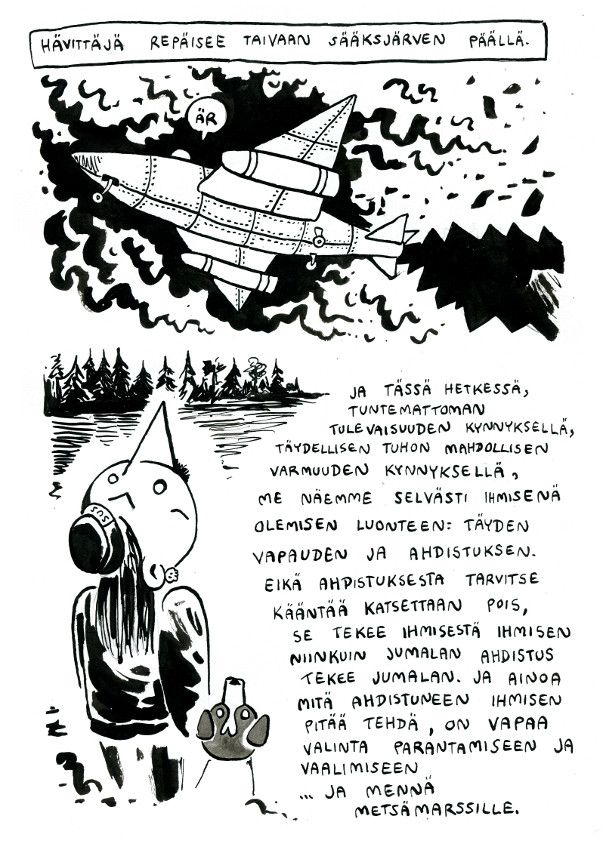 HÄVITTÄJÄ REPÄISEE TAIVAAN SÄÄKSJÄRVEN PÄÄLLÄ.
ÄR
JA TÄSSÄ HETKESSÄ,
TUNTEMATTOMAN
TULEVAISUUDEN KYNNYKSELLÄ,
TÄYDELLISEN TUHON MAHDOLLISEN
VARMUUDEN KYNNYKSELLÄ,
ME NÄEMME SELVÄSTI IHMISENÄ
OLEMISEN LUONTEEN: TÄYDEN
VAPAUDEN JA AHDISTUKSEN.
EIKÄ AHDISTUKSESTA TARVITSE
KÄÄNTÄÄ KATSETTAAN POIS,
SE TEKEE IHMISESTÄ IHMISEN
NIINKUIN JUMALAN AHDISTUS
TEKEE JUMALAN. JA AINOA
MITÄ AHDISTUNEEN IHMISEN
PITÄÄ TEHDÄ, ON VAPAA
VALINTA PARANTAMISEEN JA
VAALIMISEEN
... JA MENNÄ
METSÄMARSSILLE.
SUS